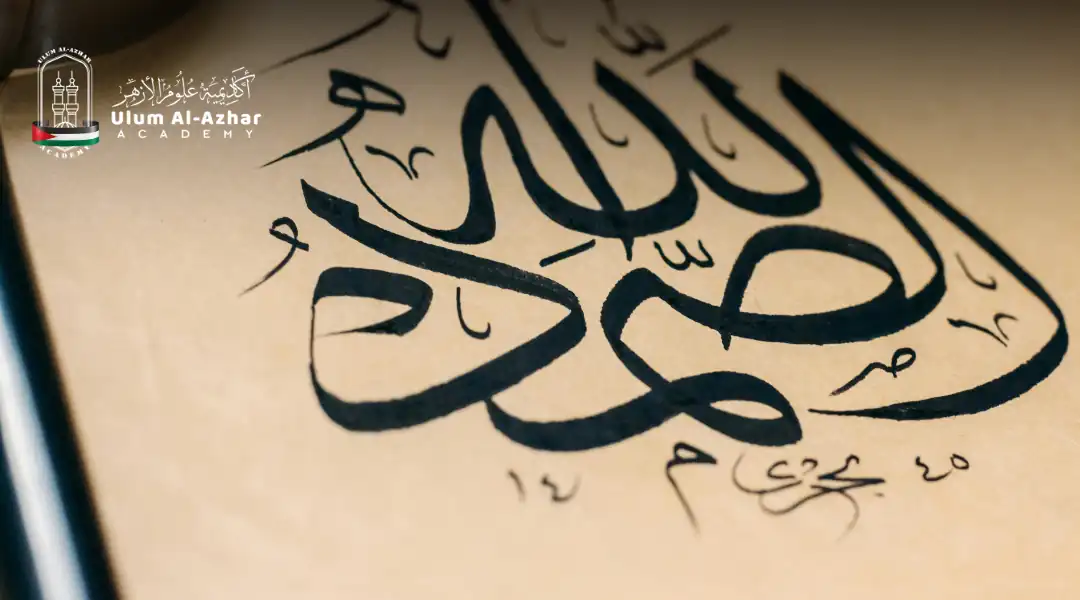 ULUM AL-AZHAR
ACADEMY
أكاديمية علوم الأزهر
Ulum Al-Azhar
ACADEMY
اللَّه
الصَّمَدُ
٤٥
١٤